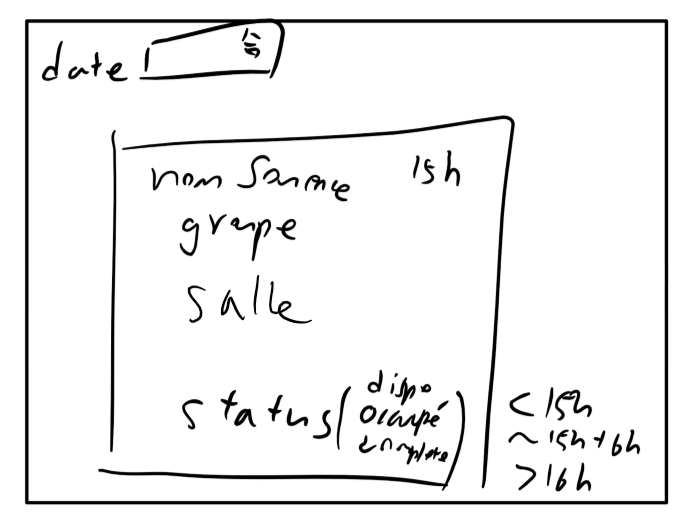 date
nom Séance 15h
groupe
salle
status ( dispo
ocupé
complete ) < 15h
~ 15h + 6h
> 16h